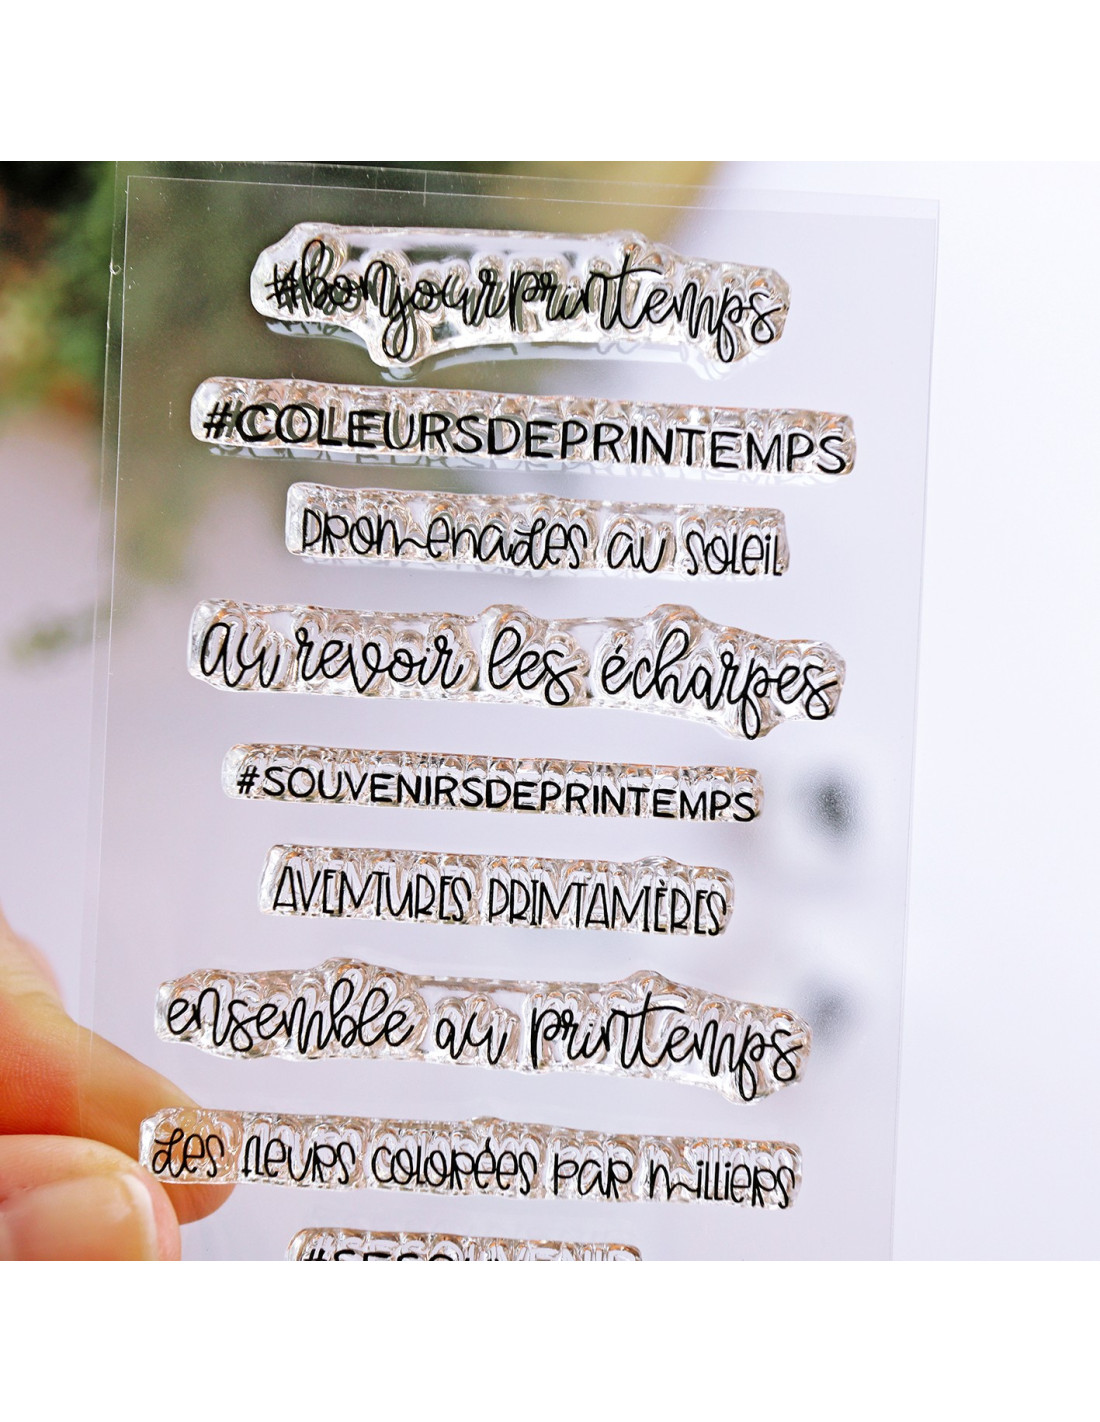 #bonjourprintemps
#COLEURSDEPRINTEMPS
promenades au soleil
au revoir les écharpes
#SOUVENIRSDEPRINTEMPS
AVENTURES PRINTANIÈRES
ensemble au printemps
des fleurs colorées par milliers
#SESOUVENIR